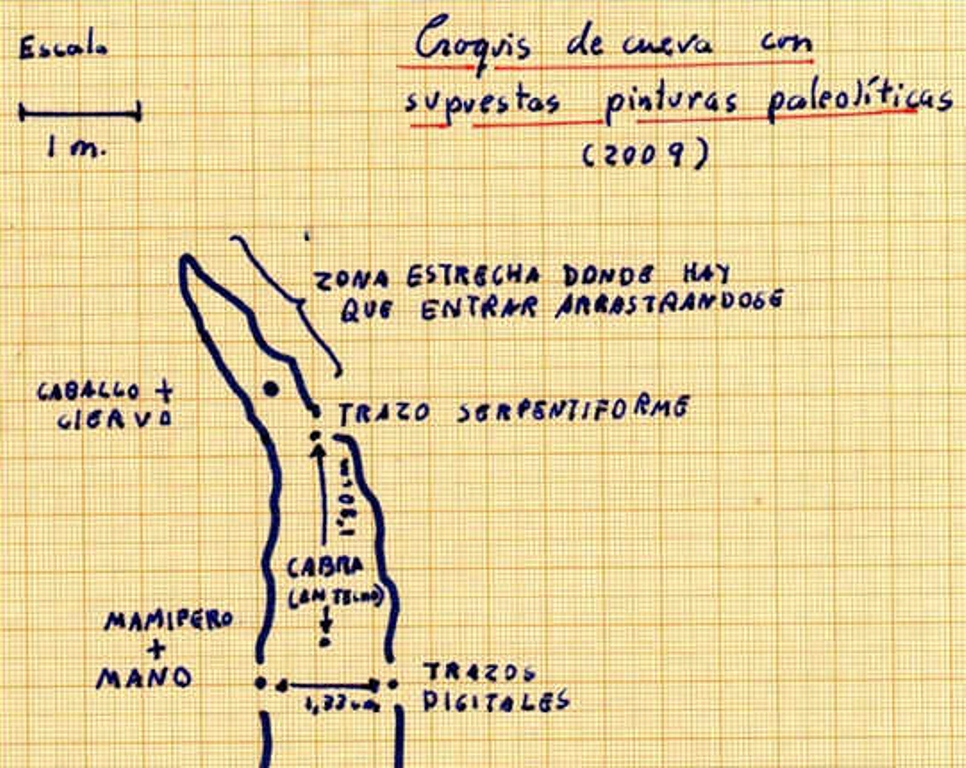 Escala
1 m.
Croquis de cueva con
supuestas pinturas paleolíticas
(2009)
ZONA ESTRECHA DONDE HAY
QUE ENTRAR ARRASTRANDOSE
CABALLO +
CIERVO
TRAZO SERPENTIFORME
CABRA
(EN TECHO)
MAMIFERO
+
MANO
TRAZOS
DIGITALES